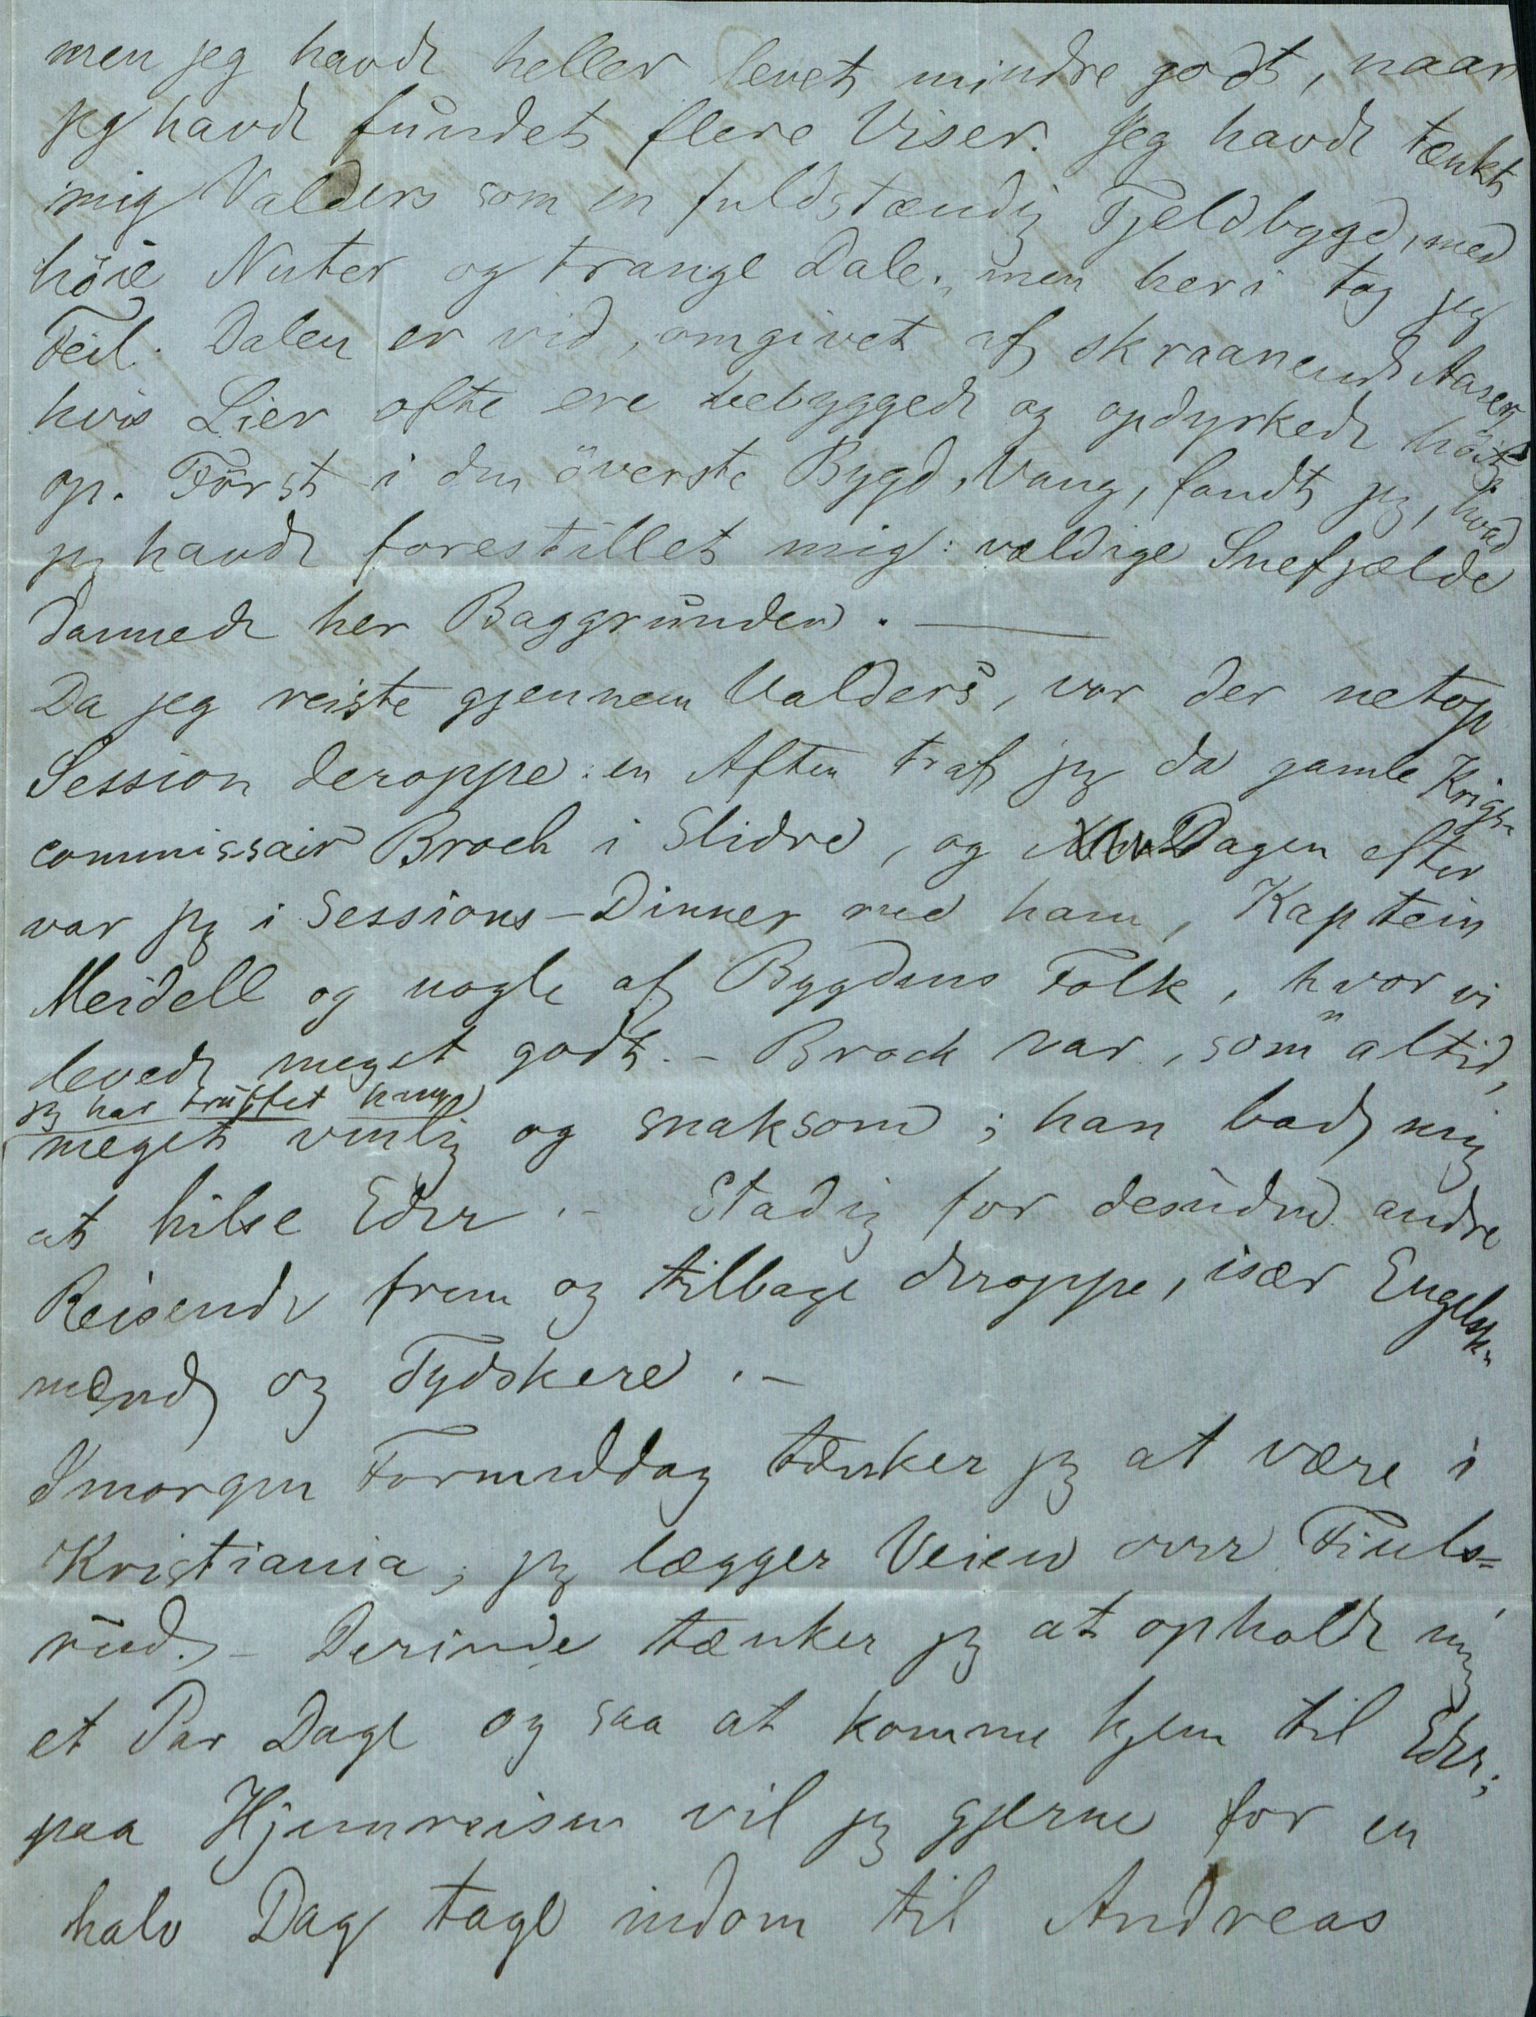 men jeg havde heller levet mindre godt, naar
jeg havde fundet flere Viser. Jeg havde tænkt
mig Valders som en fuldstændig Fjeldbygd, med
höie Nuter og trange Dale; men heri tog jeg
Feil. Dalen er vid, omgivet af skraanende Aaser,
hvis Lier ofte ere bebyggede og opdyrkede höit
op. Först i den överste Bygd, Vang, fandt jeg, hvad
jeg havde forestillet mig: vældige Snefjælde
dannede her Baggrunden. —
Da jeg reiste gjennem Valders, var der netop
Session deroppe: en Aften traf jeg da gamle Krigs-
commissair Broch i Slidre, og Dagen efter
var jeg i Sessions-Dinner med ham, Kaptein
Meidell og nogle af Bygdens Folk, hvor vi
levede meget godt. - Broch var, som altid,
jeg har truffet ham,
meget venlig og snaksom; han bad mig
at hilse Eder. - Stadig for desuden andre
Reisende frem og tilbage deroppe, især Engelsk-
mænd og Tydskere. -
Imorgen Formiddag tænker jeg at være i
Kristiania; jeg lægger Veien over Finls-
rud. - Derinde tænker jeg at opholde mig
et Par Dage og saa at komme hjem til Eder;
paa Hjemreisen vil jeg gjerne for en
halv Dag tage indom til Andreas